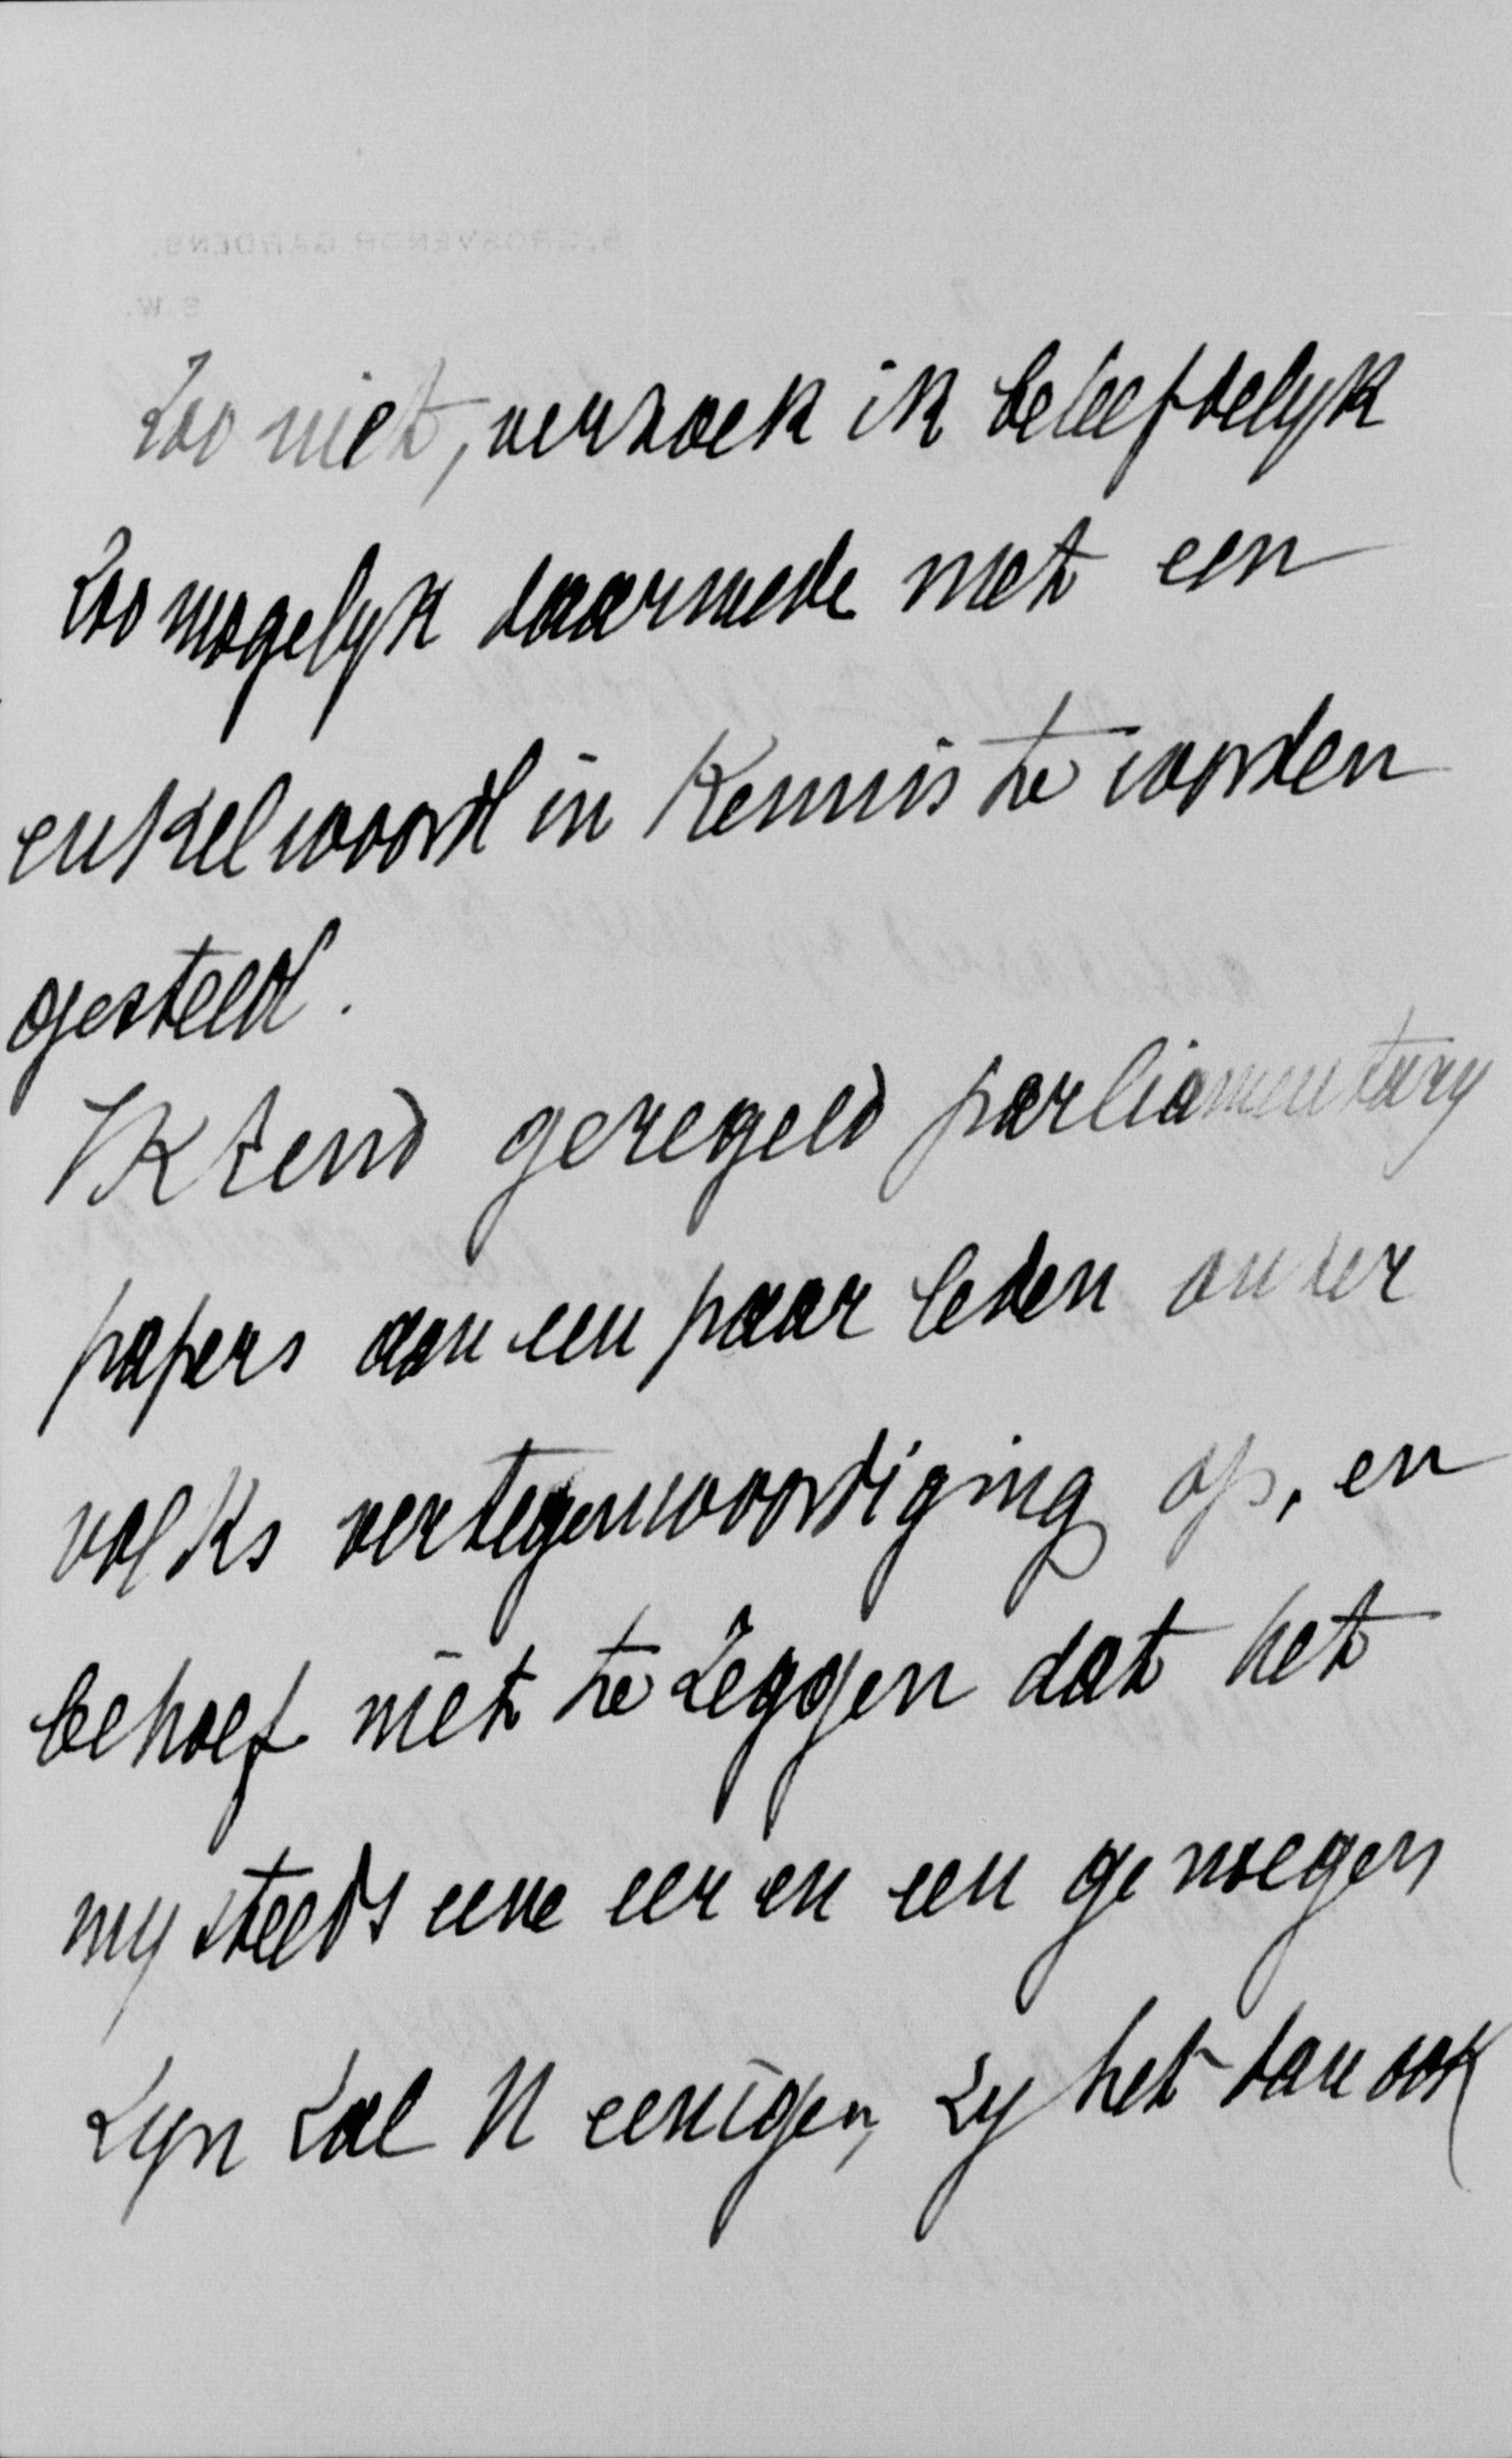 Zoo niet, verzoek ik beleefdelyk
zoo mogelyk daarmede met een
enkel woord in kennis te worden
gesteld.
Ik zend geregeld parliamentary
papers aan een paar leden onzer
volks vertegenwoordiging op, en
behoef niet te zeggen dat het
my steeds eene eer en een genoegen
zyn zal U eenigen, zy het dan ook